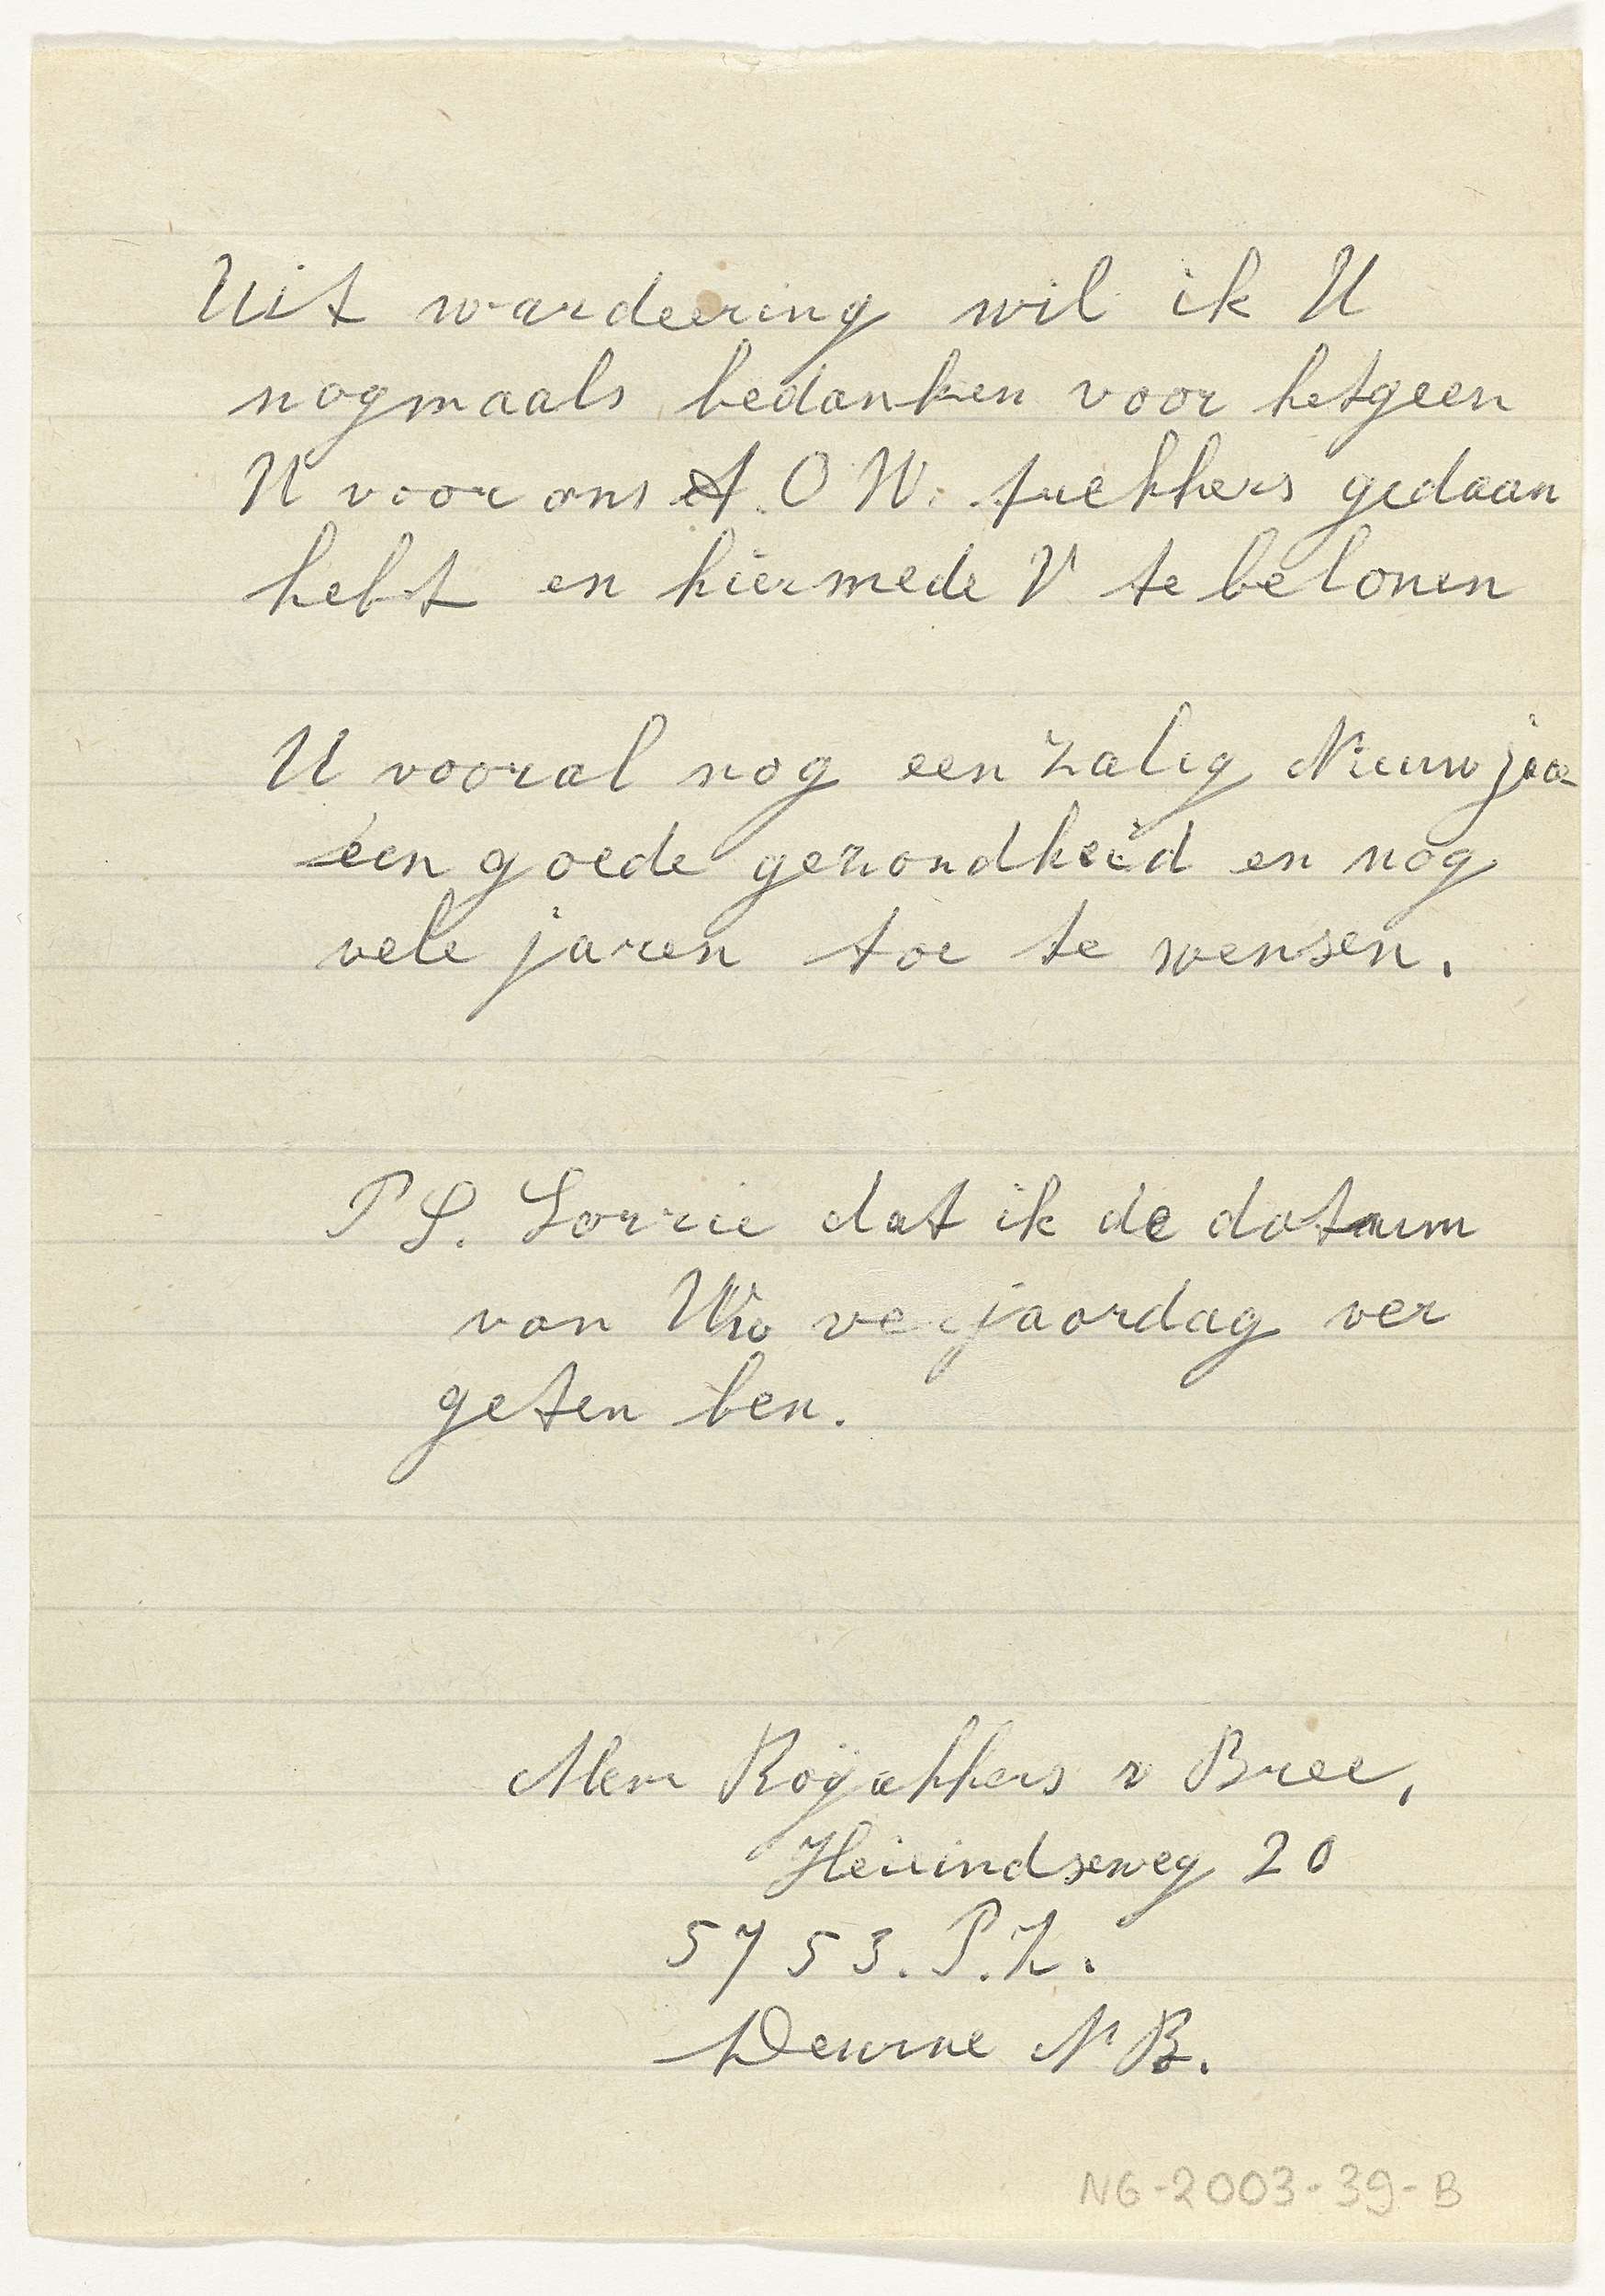 Uit wardeering wil ik U
nogmaals bedanken voor hetgeen
U voor ons A.O.W. trekkers gedaan
hebt en hiermede U te belonen
U vooral nog een zalig Nieuwjaa
een goede gezondheid en nog
vele jaren toe te wensen.
P S. Sorrie dat ik de datum
van Uw verjaardag ver
geten ben.
Mevr Roÿakkers v Bree,
Heieindseweg 20
5753.P.Z.
Deurne N B.
NG-2003-39-B